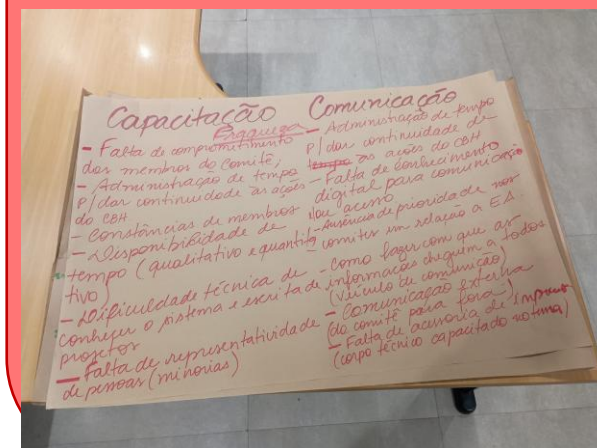 Capacitação
Fraqueza
- Falta de comprometimento
dos membros do Comitê,
- Administração de tempo
P/ dar continuidade as ações
do CBH
- Constâncias de membros
- Disponibilidade de
tempo (qualitativo e quantita
tivo)
- Dificuldade técnica de
conheçer o sistema e escrita de
projetos
- Falta de representatividade
de pessoas (minorias)
Comunicação
- Administração de tempo
P/ dar continuidade de
tempo as ações do CBH
- Falta de conhecimento
digital para comunicação
/ou acesso
- Ausência de prioridade nos
comites em relação a EA
- Como fazer com que as
informações cheguem a todos
(veículo de comunicação)
- Comunicação externa
(do comitê para fora)
- Falta de acessoria de imprensa
(corpo técnico capacitado no tema)